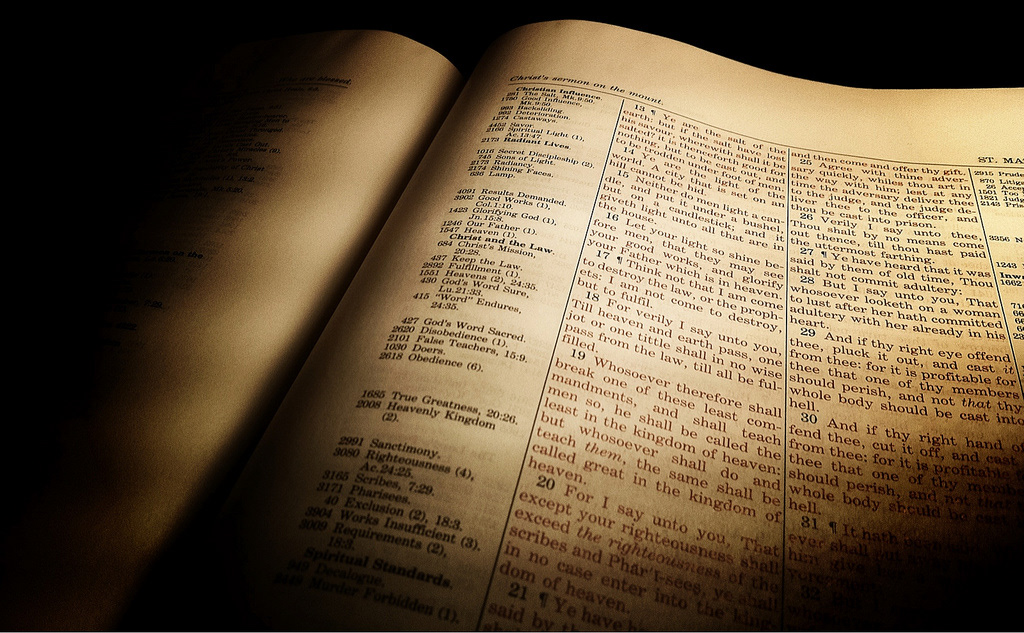 Christ's sermon on the mount.
Christian Influence.
281 The Salt, Mk.9:50.
1750 Good Influence,
Mk.9:50.
993 Backsliding.
992 Deterioration.
1274 Castaways.
4452 Savor.
2166 Spiritual Light (1),
Ac.13:47.
2173 Radiant Lives.
1016 Secret Discipleship (2).
745 Sons of Light.
2173 Radiancy.
2174 Shining Faces.
636 Lamp.
4091 Results Demanded.
3902 Good Works (1),
Col.1:10.
1423 Glorifying God (1),
Jn.15:8.
1246 Our Father (1).
1547 Heaven (1).
Christ and the Law.
684 Christ's Mission,
20:28.
437 Keep the Law.
2892 Fulfillment (1).
1551 Heavens (2), 24:35.
430 God's Word Sure,
Lu.21:33.
415 "Word" Endures,
24:35.
427 God's Word Sacred.
2620 Disobedience (1).
2101 False Teachers, 15:9.
1030 Doers.
2618 Obedience (6).
1685 True Greatness, 20:26.
2008 Heavenly Kingdom
(2).
2991 Sanctimony.
3080 Righteousness (4),
Ac.24:25.
3165 Scribes, 7:29.
3171 Pharisees.
40 Exclusion (2), 18:3.
3904 Works Insufficient (3).
3009 Requirements (2),
18:3.
Spiritual Standards.
Decalogue.
Murder Forbidden (1).
13 ¶ Ye are the salt of the
earth: but if the salt have lost
his savour, wherewith shall it be
salted? it is thenceforth good for
nothing, but to be cast out, and
to be trodden under foot of men.
14 Ye are the light of the
world. A city that is set on an
hill cannot be hid.
15 Neither do men light a can-
dle, and put it under a bushel,
but on a candlestick; and it
giveth light unto all that are in
the house.
16 Let your light so shine be-
fore men, that they may see
your good works, and glorify
your Father which is in heaven.
17 ¶ Think not that I am come
to destroy the law, or the proph-
ets: I am not come to destroy,
but to fulfil.
18 For verily I say unto you,
Till heaven and earth pass, one
jot or one tittle shall in no wise
pass from the law, till all be ful-
filled.
19 Whosoever therefore shall
break one of these least com-
mandments, and shall teach
men so, he shall be called the
least in the kingdom of heaven:
but whosoever shall do and
teach them, the same shall be
called great in the kingdom of
heaven.
20 For I say unto you, That
except your righteousness shall
exceed the righteousness of the
scribes and Phar'i-sees, ye shall
in no case enter into the king-
dom of heaven.
21 ¶ Ye have
said by
ST. MA
and then come and offer thy gift.
25 Agree with thine adver-
sary quickly, whiles thou art in
the way with him; lest at any
time the adversary deliver thee
to the judge, and the judge de-
liver thee to the officer, and
thou be cast into prison.
26 Verily I say unto thee,
Thou shalt by no means come
out thence, till thou hast paid
the uttermost farthing.
27 ¶ Ye have heard that it was
said by them of old time, Thou
shalt not commit adultery:
28 But I say unto you, That
whosoever looketh on a woman
to lust after her hath committed
adultery with her already in his
heart.
29 And if thy right eye offend
thee, pluck it out, and cast it
from thee: for it is profitable for
thee that one of thy members
should perish, and not that thy
whole body should be cast into
hell.
30 And if thy right hand of-
fend thee, cut it off, and cast
from thee: for it is profitable
thee that one of thy mem
should perish, and not that
whole body should be cast
hell.
31 ¶ It hath
2915 Prude
870 Litig
26 Acce
1501 Too
1821 Judg
2143 Pris
3356 N
1243
Inw
1662